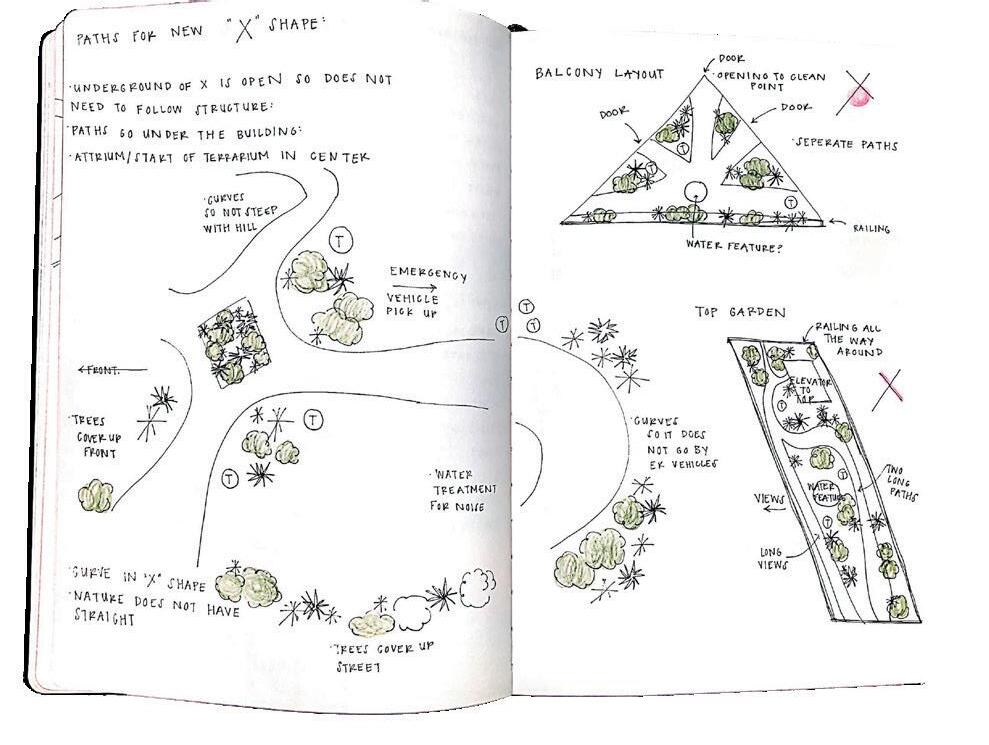 PATHS FOR NEW "X" SHAPE:
·UNDERGROUND OF X IS OPEN SO DOES NOT
NEED TO FOLLOW STRUCTURE:
·PATHS GO UNDER THE BUILDING:
·ATTRIUM/START OF TERRARIUM IN CENTER
·CURVES
SO NOT STEEP
WITH HILL
T
EMERGENCY
VEHICLE
PICK UP
FRONT
·TREES
COVER UP
FRONT
T
T
·WATER
TREATMENT
FOR NOISE
·CURVE IN "X" SHAPE
·NATURE DOES NOT HAVE
STRAIGHT
·TREES COVER UP
STREET
BALCONY LAYOUT
DOOR
·OPENING TO CLEAN
POINT
DOOR
DOOR
·SEPERATE PATHS
T
T
T
RAILING
WATER FEATURE?
T
T
T
·CURVES
SO IT DOES
NOT GO BY
ER VEHICLES
TOP GARDEN
RAILING ALL
THE WAY
AROUND
ELEVATOR
TO
TOP
T
T
WATER
FEATURE
T
TWO
LONG
PATHS
VIEWS
LONG
VIEWS